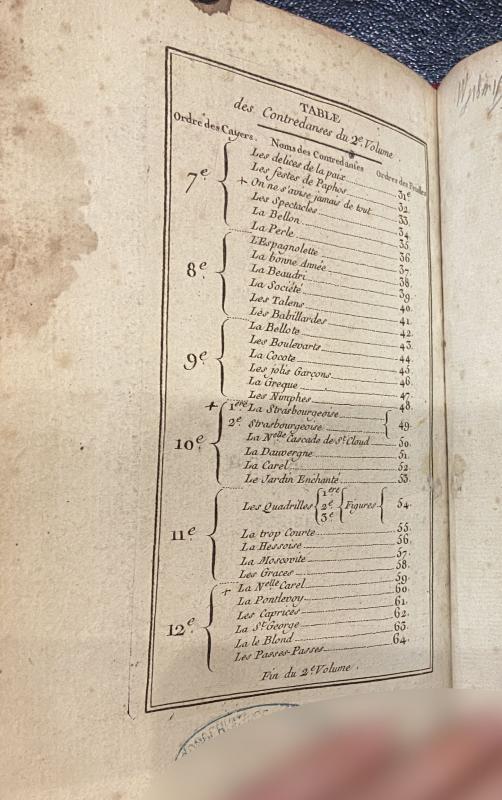 TABLE
des Contredanses du 2.e Volume
Ordre des Cayers. Noms des Contredanses Ordres des Feuilles
Les delices de la paix 31.e
Les festes de Paphos 32.
7.e + On ne s'avise jamais de tout 33.
Les Spectacles 34.
La Bellon 35.
La Perle 36.
L'Espagnolette 37.
La bonne Année 38.
8.e La Beaudri 39.
La Société 40.
Les Talens 41.
Les Babillardes 42.
La Bellote 43.
Les Boulevarts 44.
9.e La Cocote 45.
Les jolis Garçons 46.
La Greque 47.
Les Nimphes 48.
+ 1.ere La Strasbourgeoise
2.e Strasbourgeoise 49.
10.e La N.elle Cascade de S.t Cloud 50.
La Dauvergne 51.
La Carel 52.
Le Jardin Enchanté 53.
Les Quadrilles 1.ere 2.e 3.e Figures 54.
11.e La trop Courte 55.
La Hessoise 56.
La Moscovite 57.
Les Graces 58.
+ La N.elle Carel 59.
La Pontlevoy 60.
Les Caprices 61.
12.e La S.t George 62.
La le Blond 63.
Les Passes-Passes 64.
Fin du 2.e Volume.